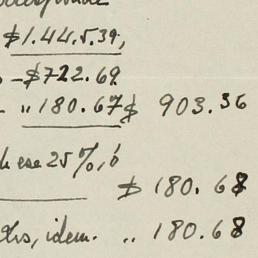 $1.445.39,
-$722.69
" 180.67 $ 903.36
ese 25%, ó
$ 180.68
idem. " 180.68